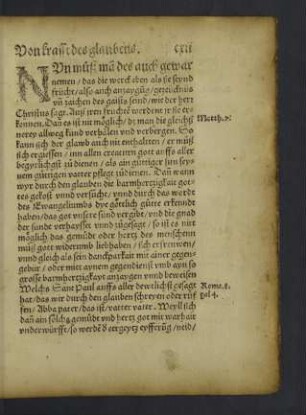 Von krafft des glaubens. cxii
NUn müß mā des auch gewar
nemen / das die werck eben als sye seynd
frücht / also auch anzeygūg / gezeucknüs
vñ zaichen des gaists seind / wie der herr
Christus sagt. Auß iren früchtē werdend ir sie er-
kennen. Dañ es ist nit möglich / dz man die gleichs-
nerey allweg kund verhalen vnd verbergen. So
kann sich der glaub auch nit enthalten / er müß
sich ergiessen / inn allen creaturn got auffs aller
begyrlichst zů dienen / als ein gůttiger sun sey-
nem gůttigen vatter pflegt zůdienen. Dañ wann
wyr durch den glauben die barmhertzigkait got-
tes gekost vnnd versůcht / vnnd durch das wordt
des Ewangeliumbs dye götlich gütte erkenndt
haben / das got vnsere sund vergibt / vnd die gnad
der sunde verthayset vnnd zůgesagt / so ist es nit
möglich das gemüdt oder hertz des menschenn
můß gott widerumb liebhaben / sich erfrewen /
vnnd gleich als sein danckparkait mit ainer gegen-
gebür / oder mit aynem gegendienst vmb ayn so
grosse barmhertzigkayt anzaygen vnnd beweisen
Welchs Sant Paul auffs aller dewtlichst gesagt
hat / das wir durch den glauben schreyen oder rüf
fen / Abba pater / das ist / vatter vater. Weyl sich
dañ ain sölchs gemüdt vnd hertz got mit warhait
vnderwürfft / so werdē d eergeytz eyfferüg / neid /
Matth. 7.
Rome. 8.
Gal 4.